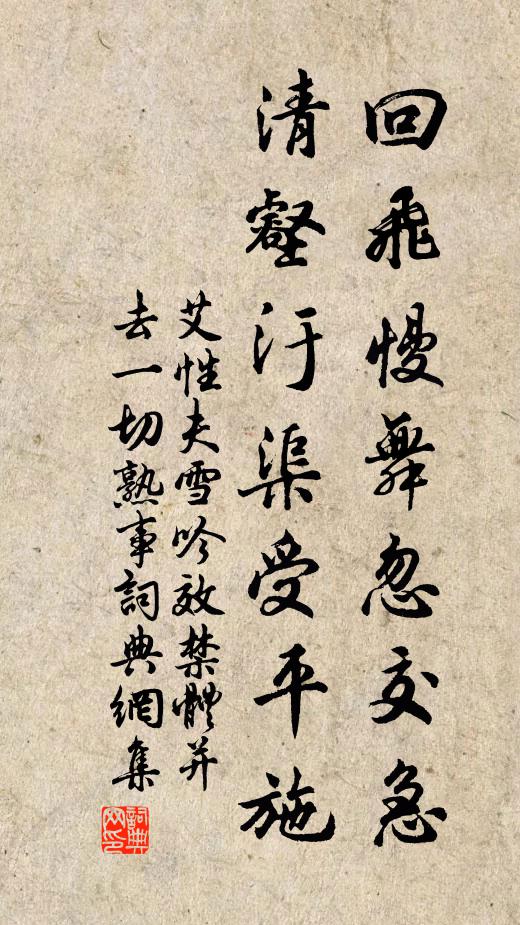 回飛慢舞忽交急
清壑汙渠受平施
艾性夫雪吟效禁體并
去一切熟事詞典網集
詞典网印